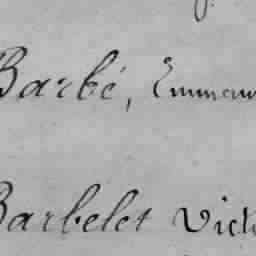 Barbé, Emman
Barbelet Vict